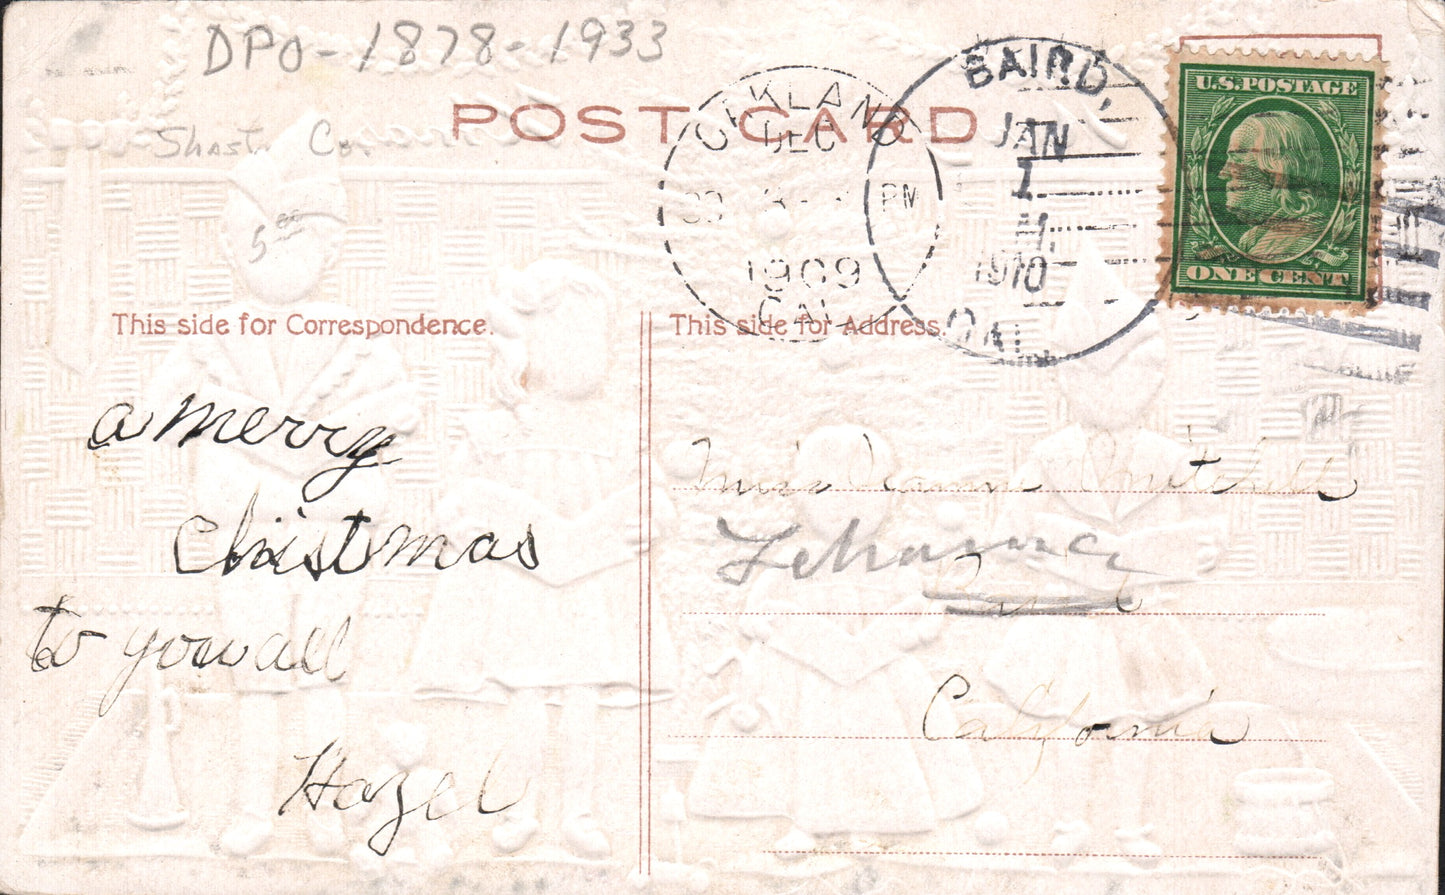 DPO - 1878 - 1933
POST CARD
Shast. Co.
5.00
OAKLAND
DEC
PM
1909
CAL.
BAIRD,
JAN
1
M.
1910
CAL.
U.S. POSTAGE
ONE CENT
This side for Correspondence.
This side for Address.
a merry
christmas
to you all
Hazel
Miss Mitchell
Tehama
California